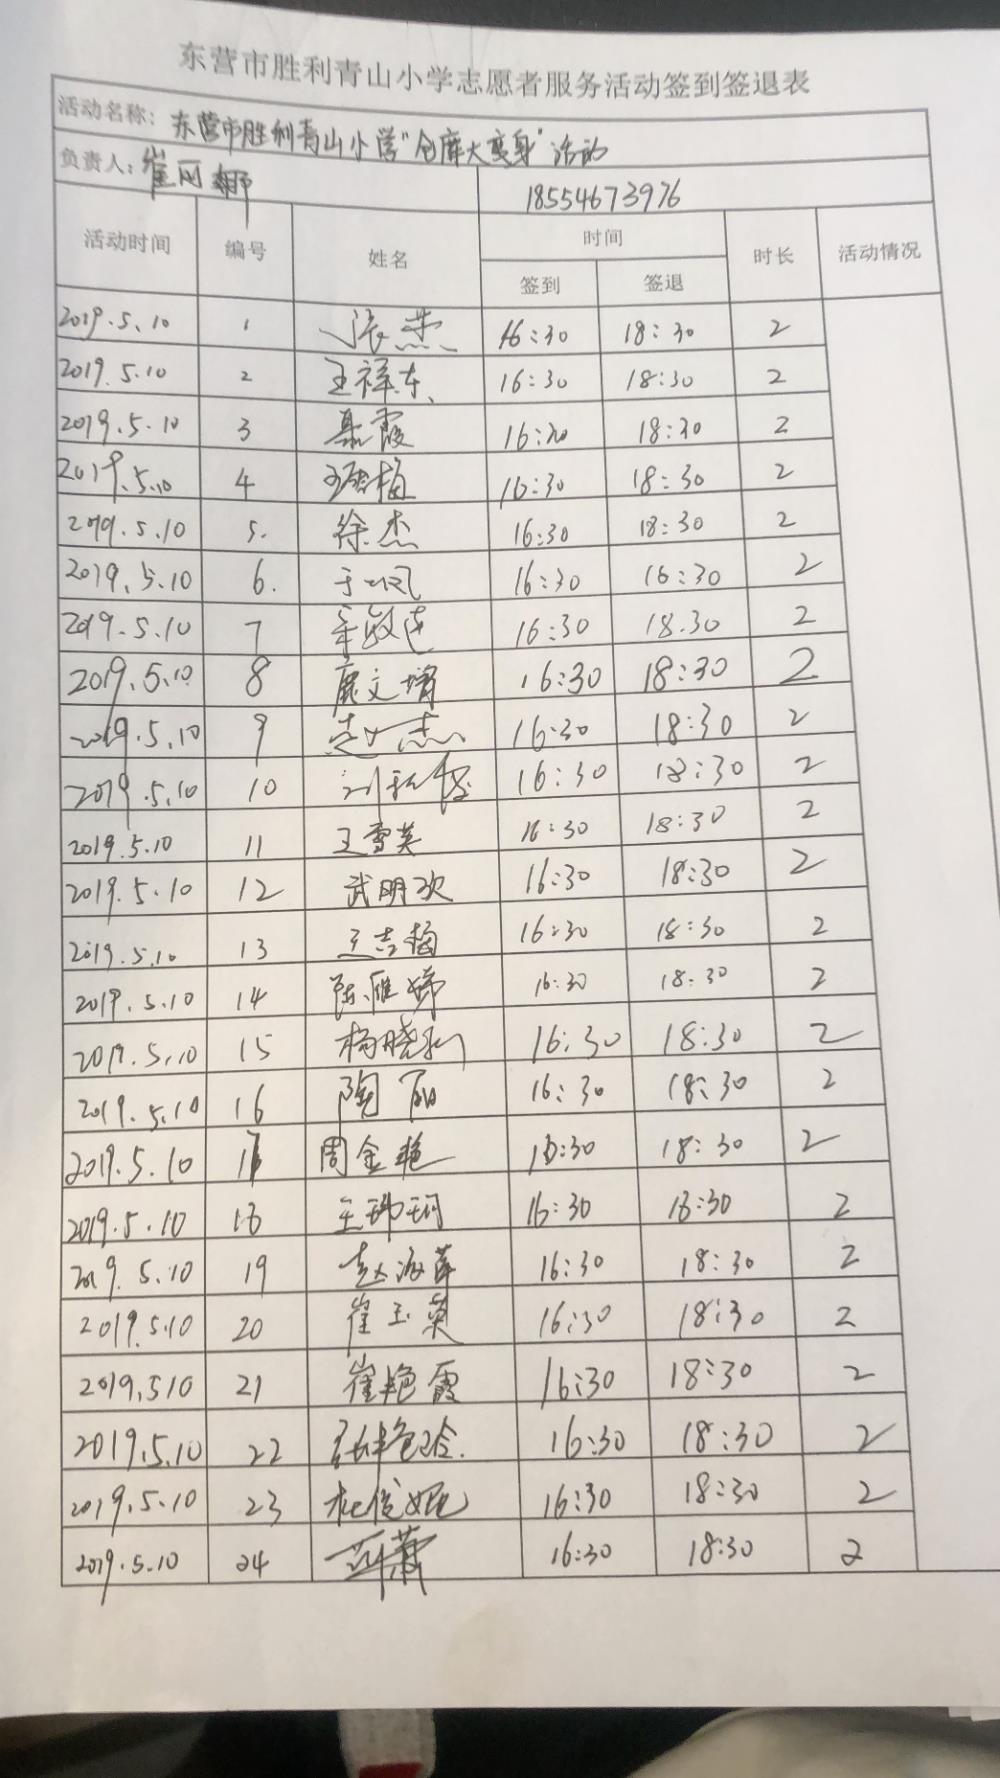 东营市胜利青山小学志愿者服务活动签到签退表
活动名称：东营市胜利青山小学“仓库大变身”活动
负责人：崔丽娜 18554673976
活动时间 编号 姓名 时间 时长 活动情况
签到 签退
2019.5.10 1 张燕 16:30 18:30 2
2019.5.10 2 王祥东 16:30 18:30 2
2019.5.10 3 聂霞 16:30 18:30 2
2019.5.10 4 16:30 18:30 2
2019.5.10 5. 徐杰 16:30 18:30 2
2019.5.10 6. 16:30 16:30 2
2019.5.10 7 16:30 18.30 2
2019.5.10 8 鹿文增 16:30 18:30 2
2019.5.10 9 16:30 18:30 2
2019.5.10 10 16:30 18:30 2
2019.5.10 11 王雪英 16:30 18:30 2
2019.5.10 12 武明欢 16:30 18:30 2
2019.5.10 13 王吉梅 16:30 18:30 2
2019.5.10 14 陈雁娣 16:30 18:30 2
2019.5.10 15 16:30 18:30 2
2019.5.10 16 陶丽 16:30 18:30 2
2019.5.10 17 周金艳 16:30 18:30 2
2019.5.10 18 王玮珂 16:30 18:30 2
2019.5.10 19 赵海萍 16:30 18:30 2
2019.5.10 20 崔玉英 16:30 18:30 2
2019.5.10 21 崔艳霞 16:30 18:30 2
2019.5.10 22 16:30 18:30 2
2019.5.10 23 杜俊妮 16:30 18:30 2
2019.5.10 24 16:30 18:30 2